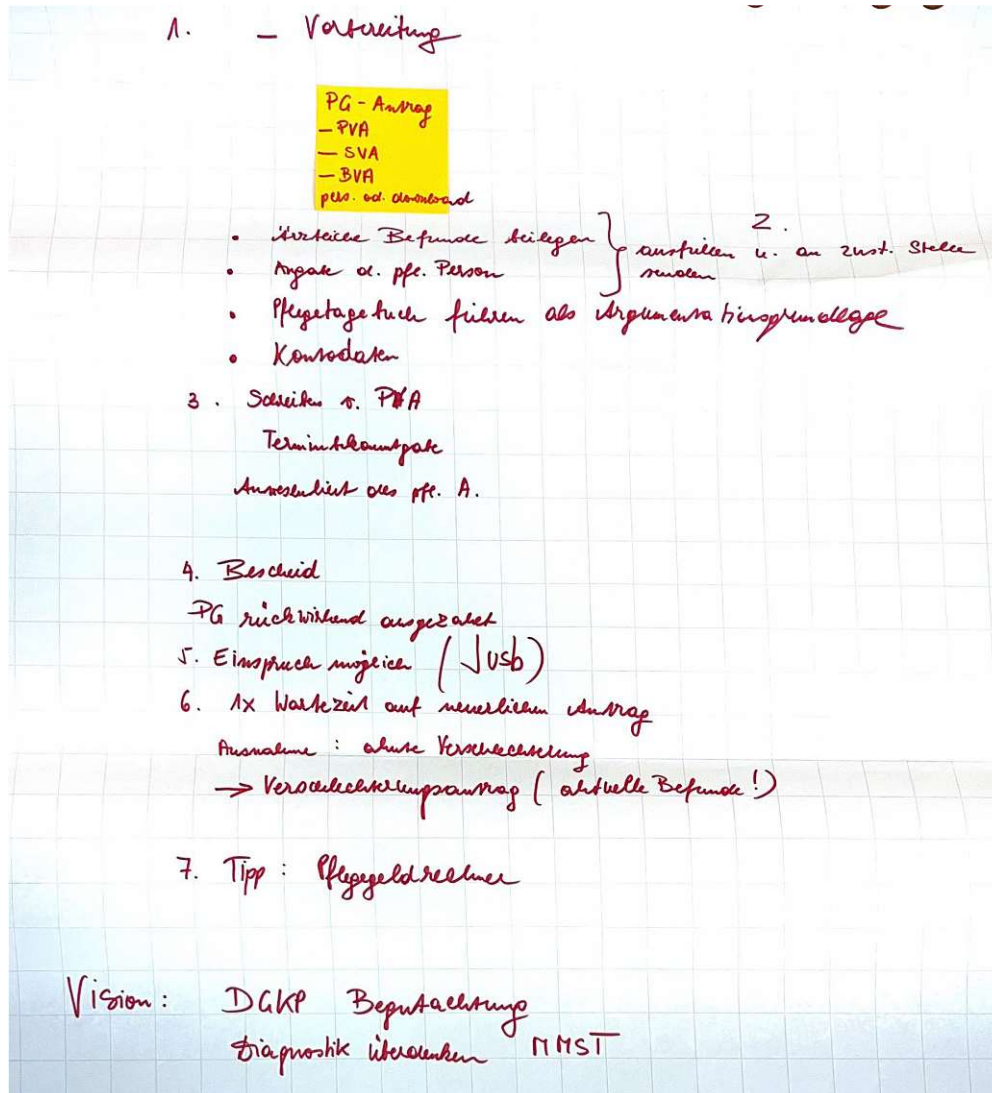 1. – Vorbereitung
PG - Antrag
– PVA
– SVA
– BVA
pers. od. download
• ärztliche Befunde beilegen
• Angabe d. pfl. Person
2.
ausfüllen u. an zust. Stelle
senden
• Pflegetagebuch führen als Argumentationsgrundlage
• Kontodaten
3. Schreiben v. PVA
Terminbekanntgabe
Anwesenheit des pfl. A.
4. Bescheid
PG rückwirkend ausgezahlt
5. Einspruch möglich (Jusb)
6. 1x Wartezeit auf neuerlichen Antrag
Ausnahme: akute Verschlechterung
→ Verschlechterungsantrag (aktuelle Befunde!)
7. Tipp: Pflegegeldrechner
Vision: DGKP Begutachtung
Diagnostik überdenken MMST